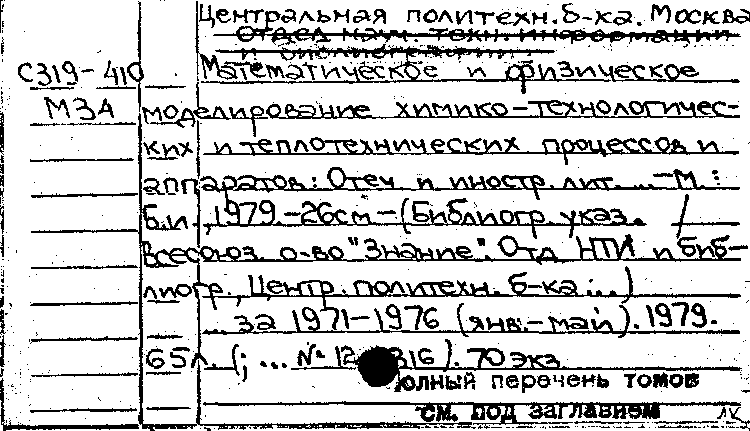 Центральная политехн. б-ка. Москва
Отдел науч. техн. информации
и библиографии.
С319-410 Математическое и физическое
М34 моделирование химико-технологичес-
ких и теплотехнических процессов и
аппаратов: Отеч. и иностр. лит. ...-М.:
Б.и., 1979.-26см-(Библиогр. указ. /
Всесоюз. о-во "Знание". Отд. НТИ и биб-
лиогр., Центр. политехн. б-ка ...)
... за 1971-1976 (янв.-май). 1979.
65л. (; ... № 12 316). 70 экз
полный перечень томов
см. под заглавием